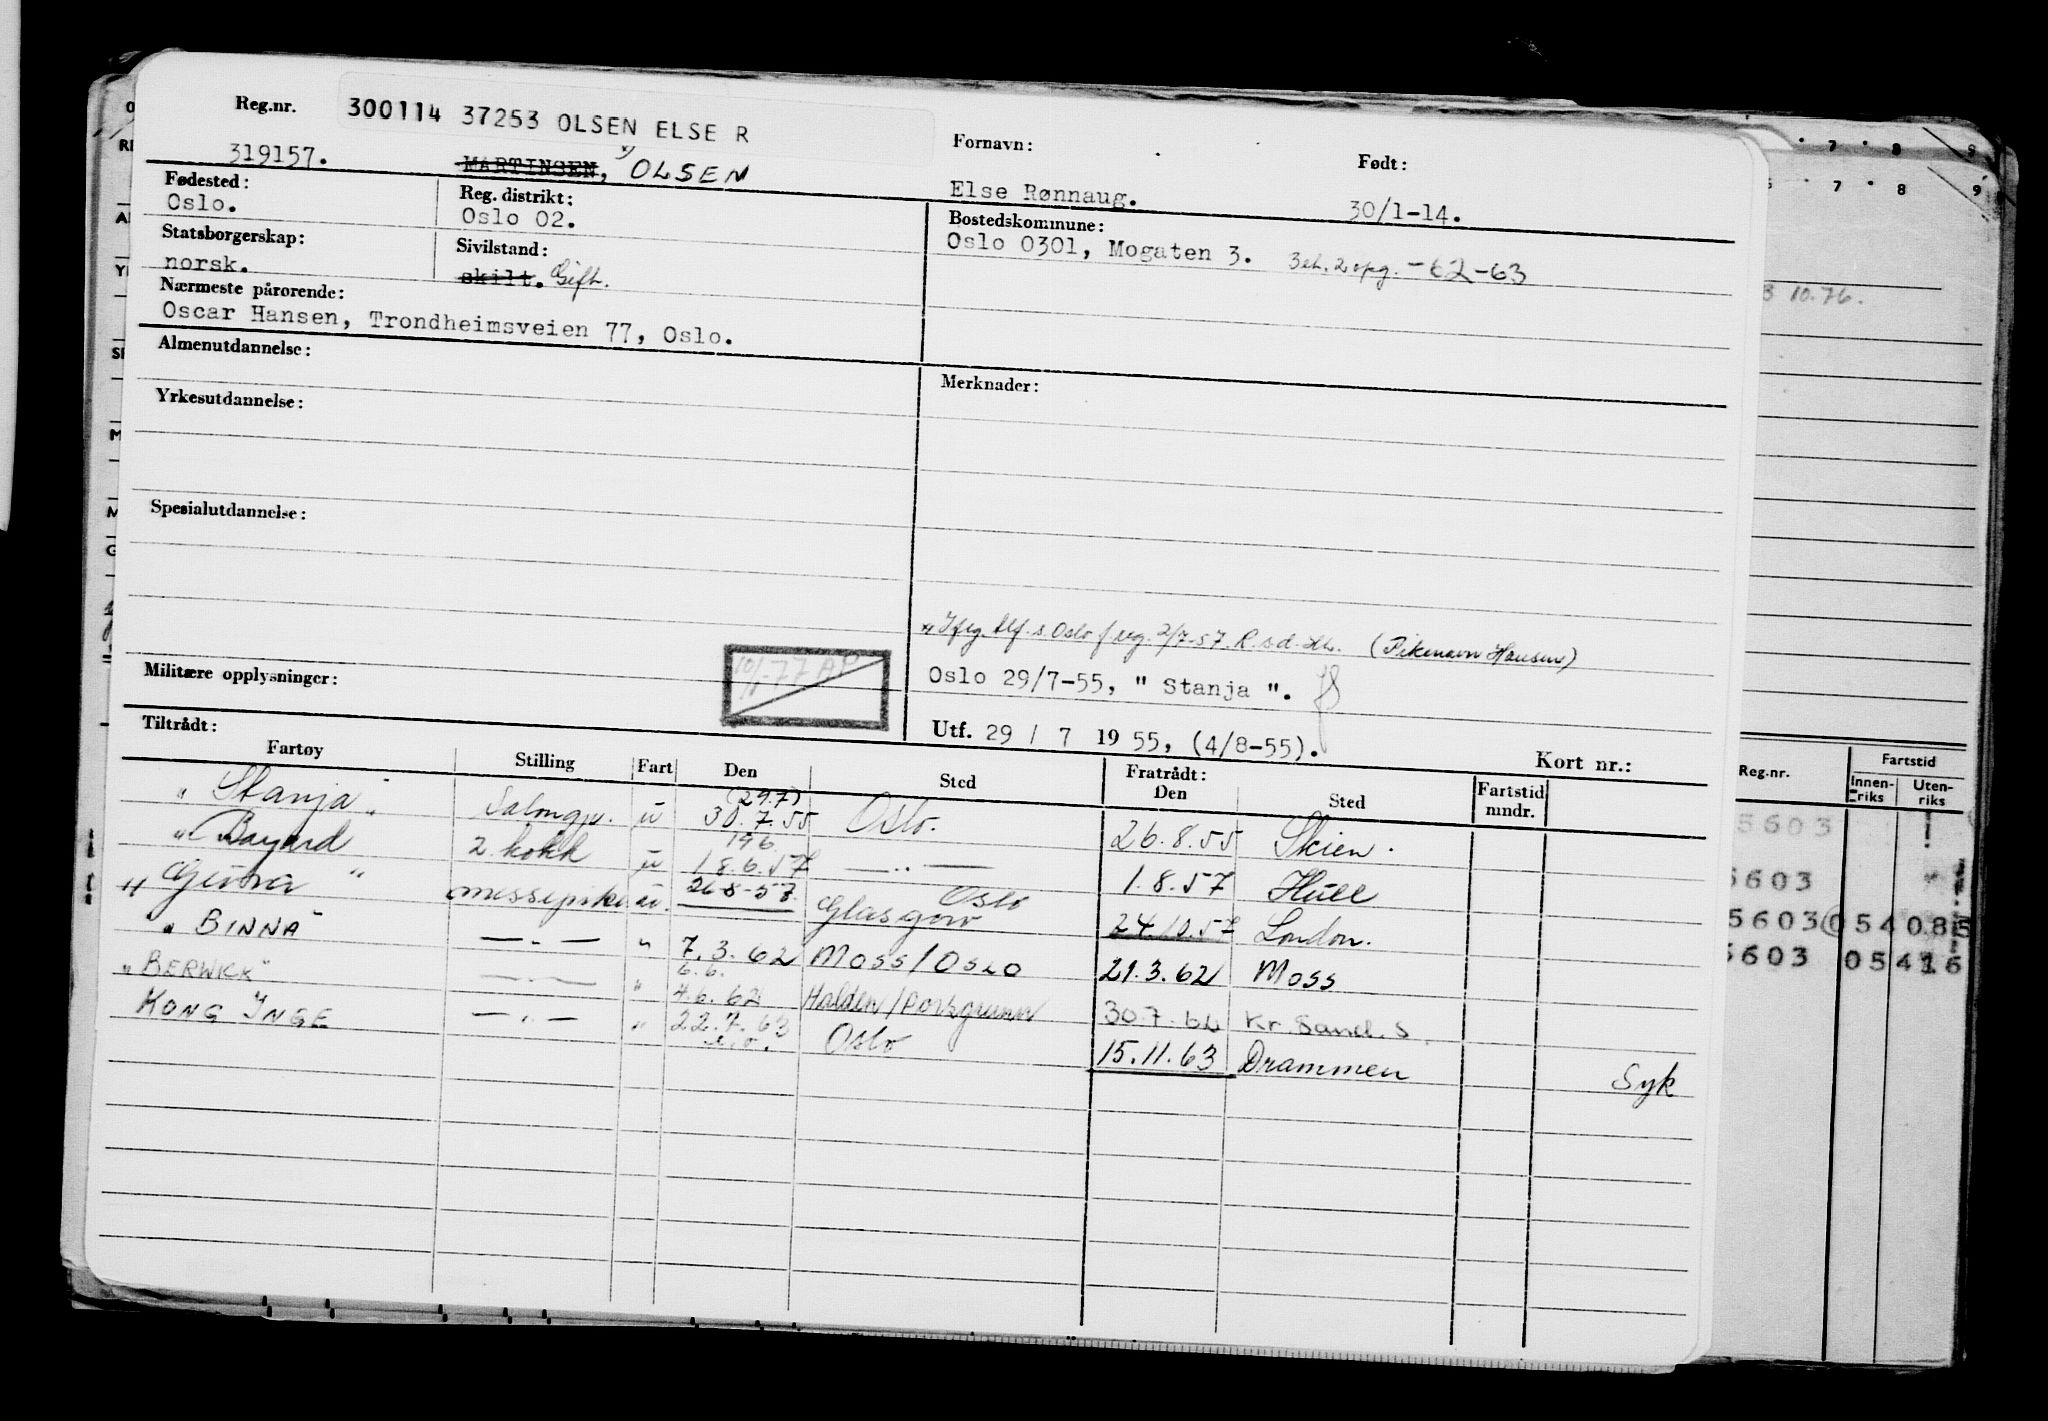 Reg.nr. 300114 37253 OLSEN ELSE R
319157. MARTINSEN, x) OLSEN
Fornavn: Født:
Else Rønnaug. 30/1-14.
Fødested: Reg. distrikt: Bostedskommune:
Oslo. Oslo 02. Oslo 0301, Mogaten 3. -62-63
Statsborgerskap: Sivilstand:
norsk. skilt. Gift.
Nærmeste pårørende:
Oscar Hansen, Trondheimsveien 77, Oslo.
Almenutdannelse: Merknader:
Yrkesutdannelse:
Spesialutdannelse:
Oslo f reg. 2/7-57. (Pikenavn Hansen)
Militære opplysninger: 10/1-77 AP Oslo 29/7-55, " Stanja ".
Utf. 29 / 7 19 55, (4/8-55). Kort nr.:
Tiltrådt: Fratrådt:
Fartøy Stilling Fart Den Sted Den Sted Fartstid mndr.
(29.7)
" Stanja " Salongp. u 30.7.55 Oslo. 26.8.55 Skien.
196.
" Bayard 2. kokk u 18.6.57 —"— 1.8.57 Hull
" Geisha " messepike u. 26-8-57 Glasgow Oslo 24.10.57 London.
" BINNA " — " — " 7.3.62 Moss/Oslo 21.3.62 Moss
6.6.
"BERWICK" — " — " 4.6.62 Halden/Porsgrunn 30.7.62 Kr. Sand. S.
KONG INGE — " — " 22.7.63 Oslo 15.11.63 Drammen Syk
7 8 9
7 8 9
10.76.
Reg.nr. Fartstid
Innen-riks Uten-riks
5603
5603
5603 054 085
5603 054 16